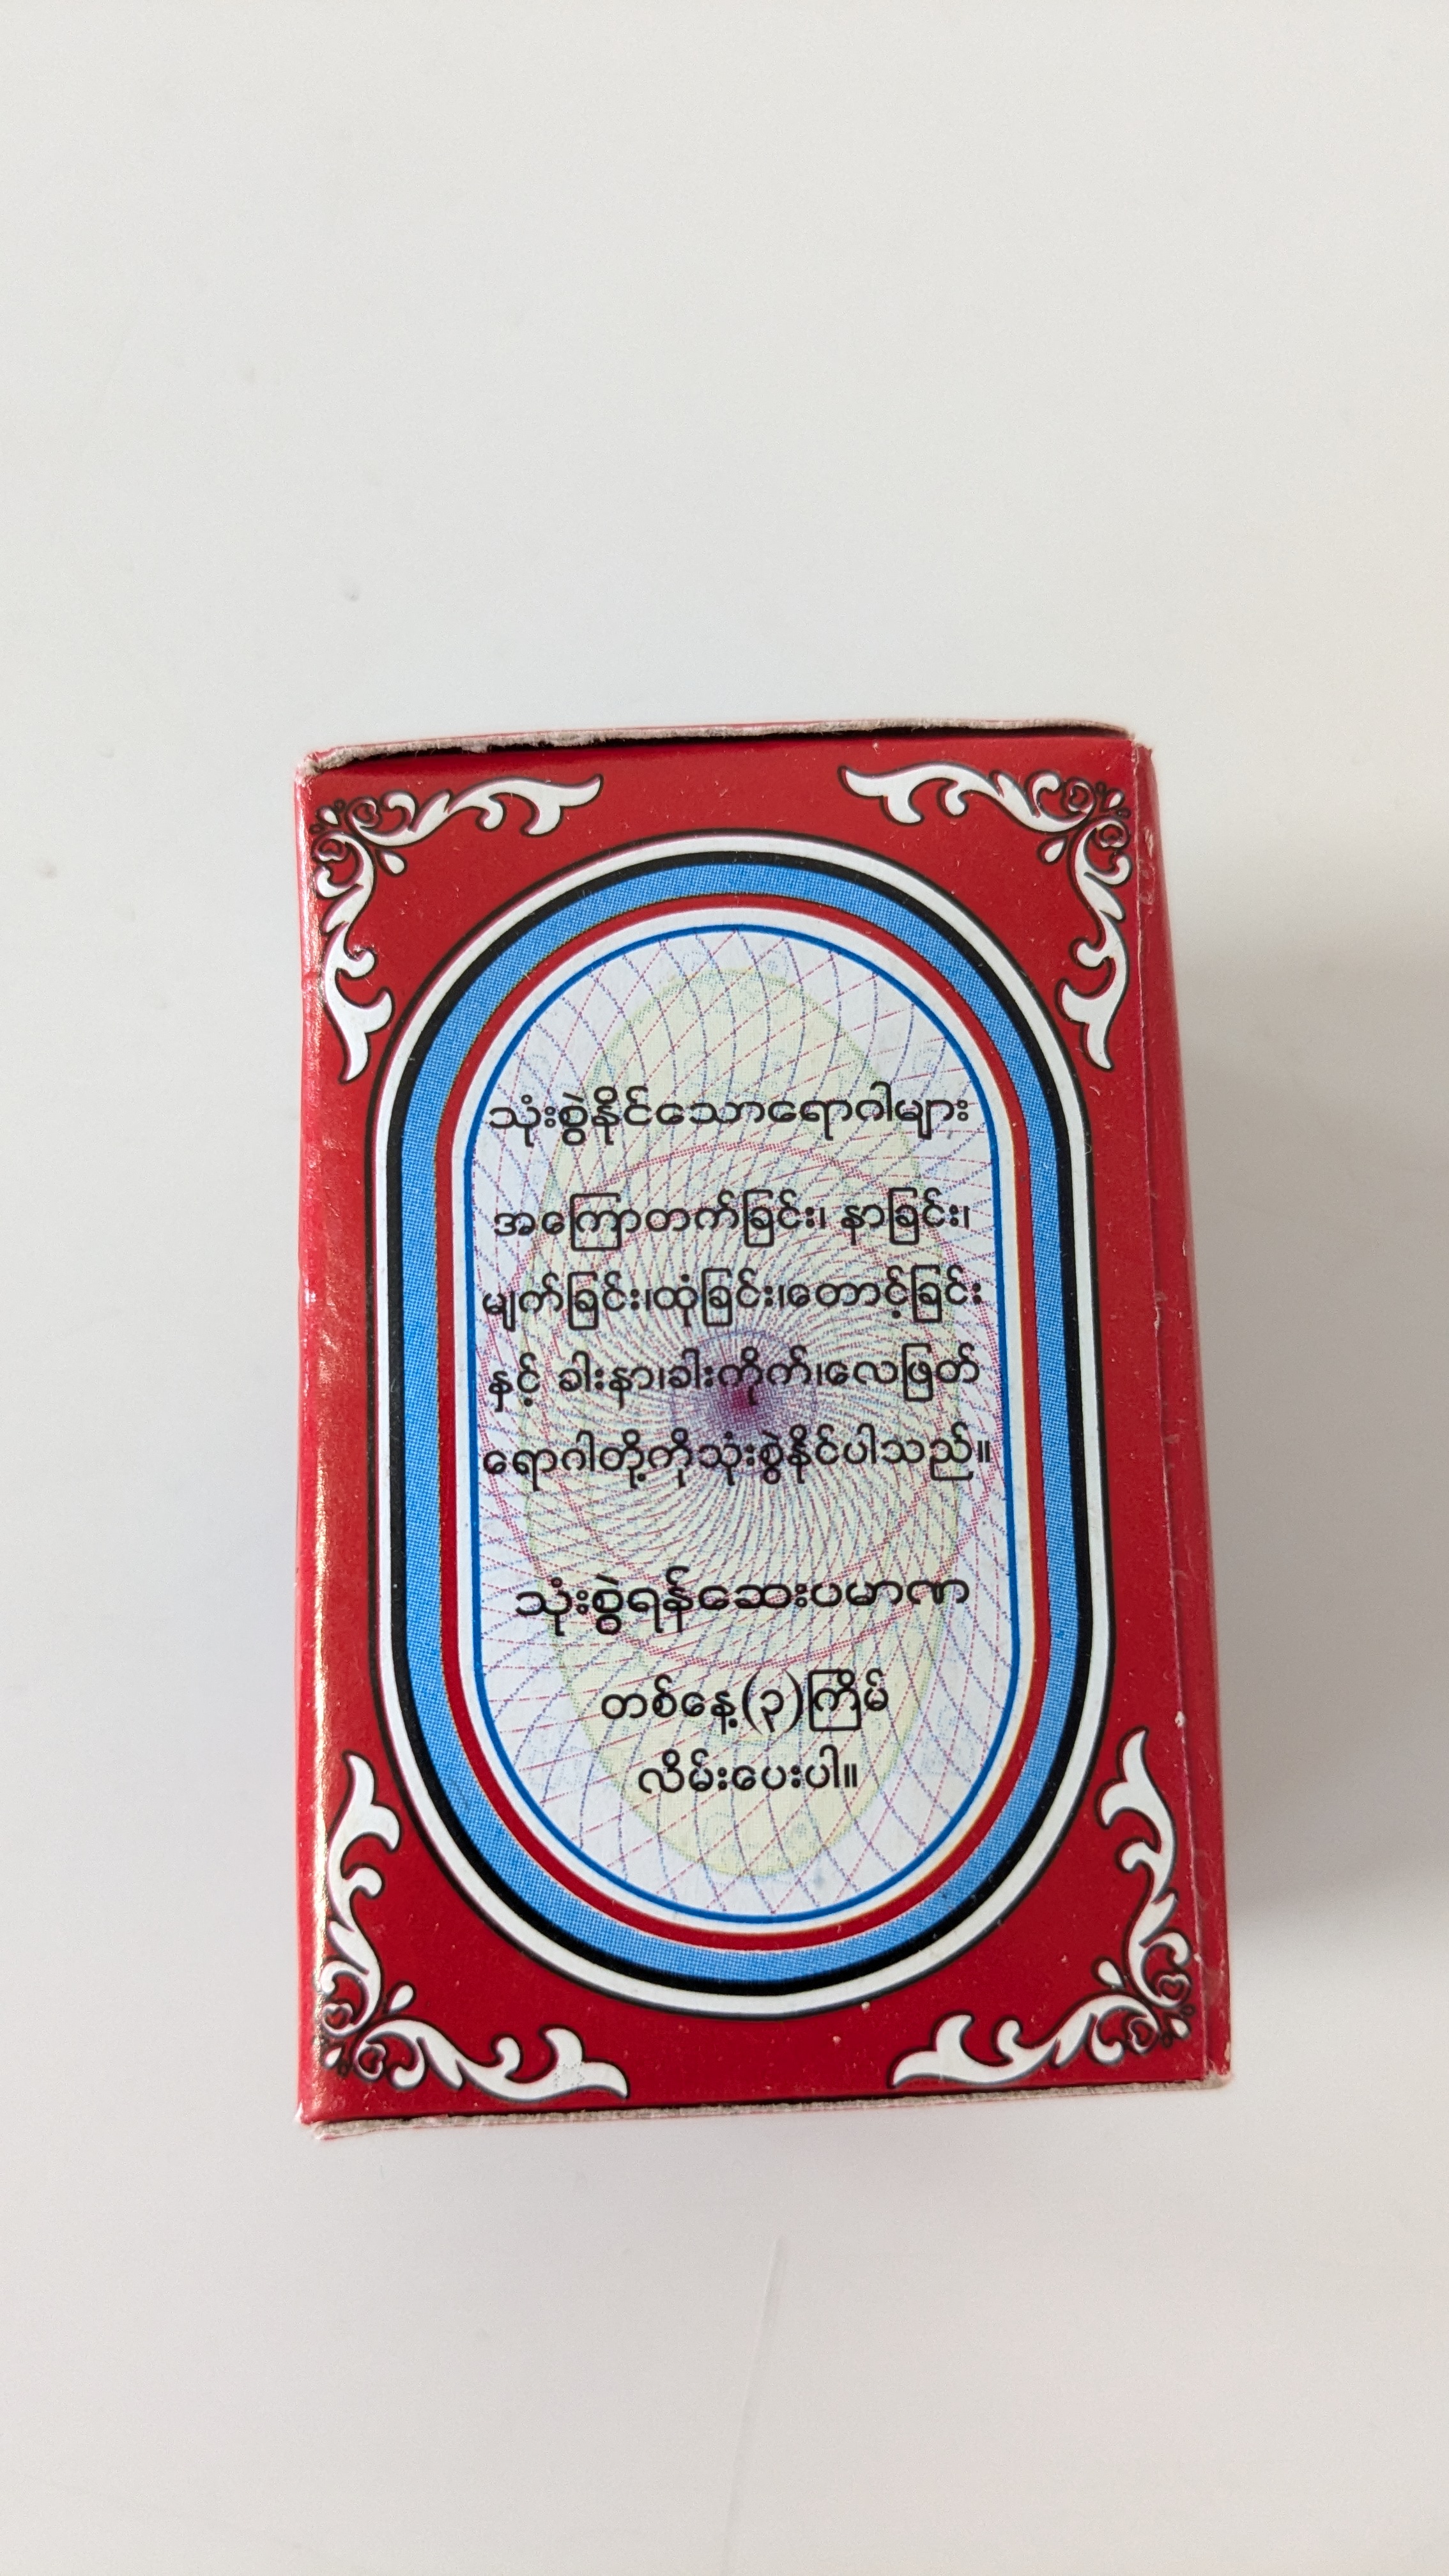 သုံးစွဲနိုင်သောရောဂါများ
အကြောတက်ခြင်း၊ နာခြင်း၊
မျက်ခြင်း၊ထုံခြင်း၊တောင့်ခြင်း
နှင့် ခါးနာ၊ခါးကိုက်၊လေဖြတ်
ရောဂါတို့ကိုသုံးစွဲနိုင်ပါသည်။
သုံးစွဲရန်ဆေးပမာဏ
တစ်နေ့(၃)ကြိမ်
လိမ်းပေးပါ။